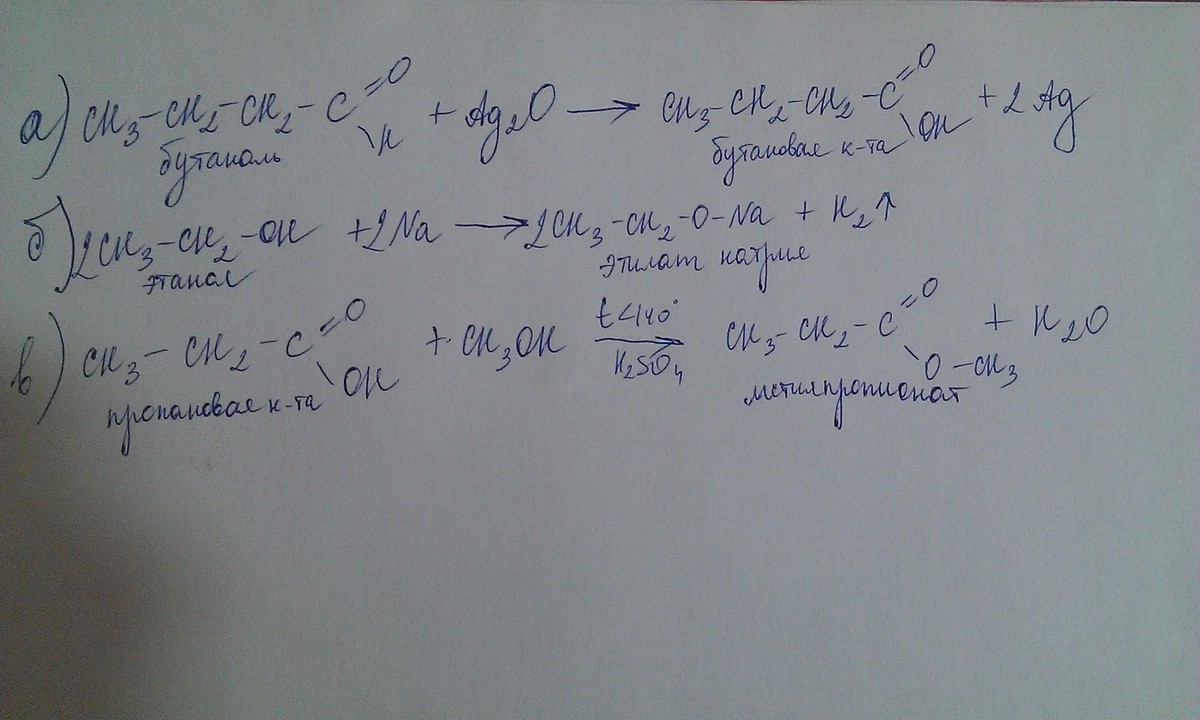 а) CH3-CH2-CH2-C=O\H + Ag2O → CH3-CH2-CH2-C=O\OH + 2Ag
бутаналь бутановая к-та
б) 2CH3-CH2-OH + 2Na → 2CH3-CH2-O-Na + H2↑
этанол этилат натрия
в) CH3-CH2-C=O\OH + CH3OH t<140° → H2SO4 CH3-CH2-C=O\O-CH3 + H2O
пропановая к-та метилпропионат